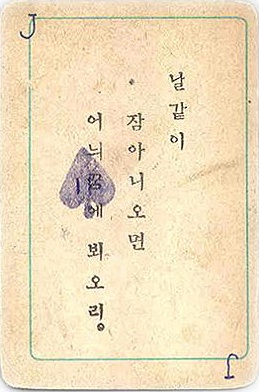 J
날같이
잠아니오면
어늬꿈에 뵈오리。
J